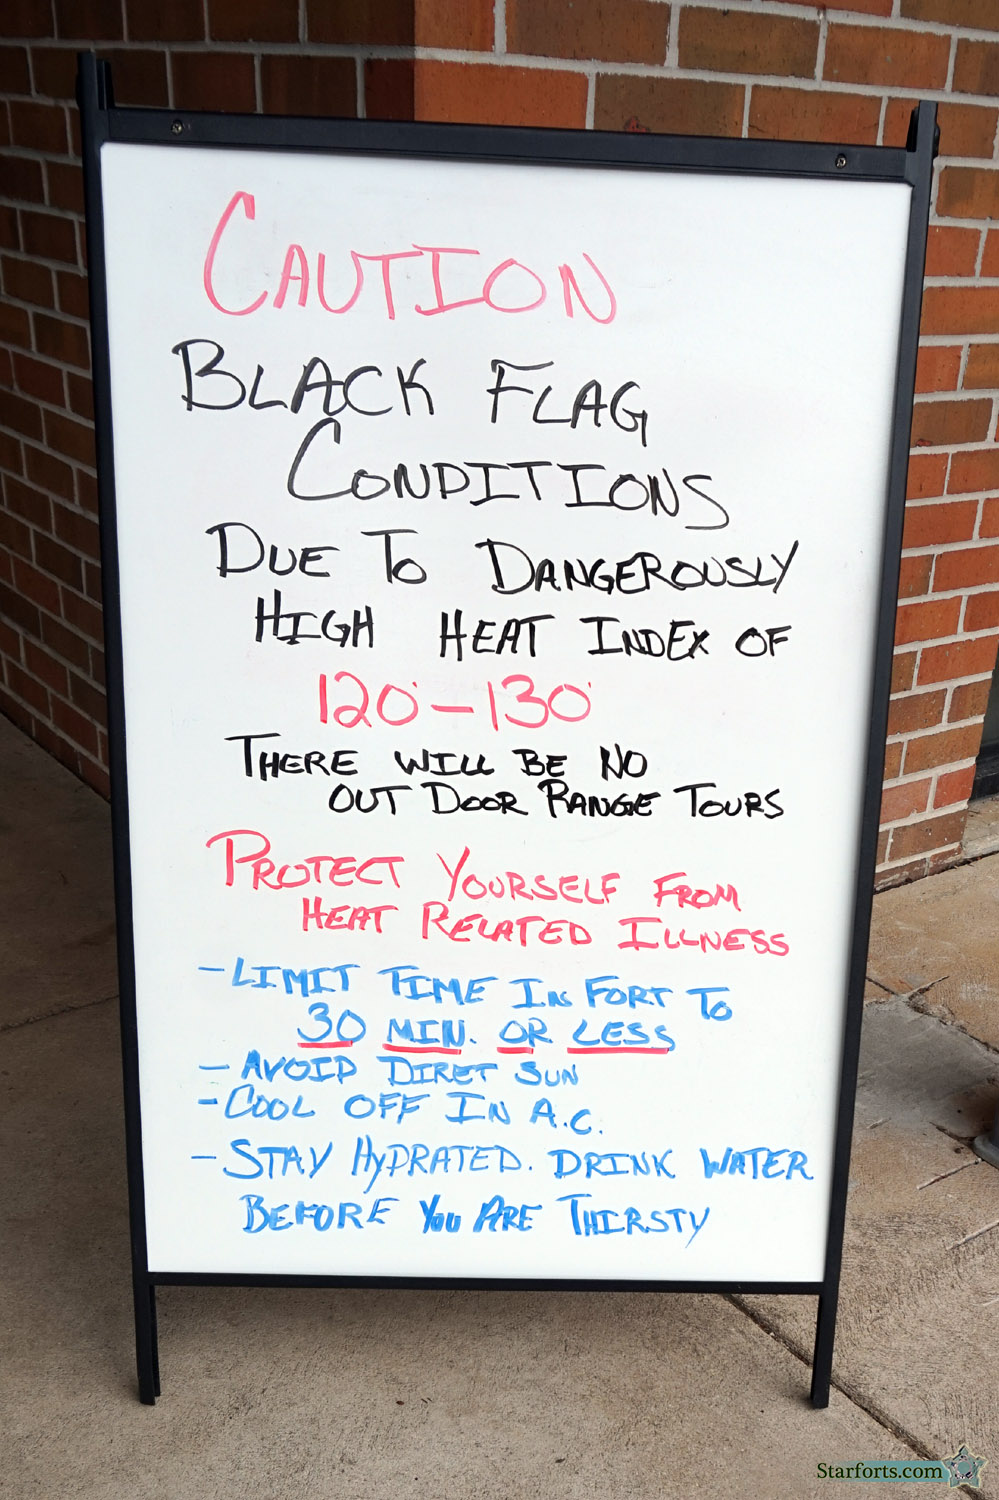 CAUTION
BLACK FLAG
CONDITIONS
DUE TO DANGEROUSLY
HIGH HEAT INDEX OF
120° - 130°
THERE WILL BE NO
OUT DOOR RANGE TOURS
PROTECT YOURSELF FROM
HEAT RELATED ILLNESS
- LIMIT TIME IN FORT TO
30 MIN. OR LESS
- AVOID DIRET SUN
- COOL OFF IN A.C.
- STAY HYDRATED. DRINK WATER
BEFORE YOU ARE THIRSTY
Starforts.com